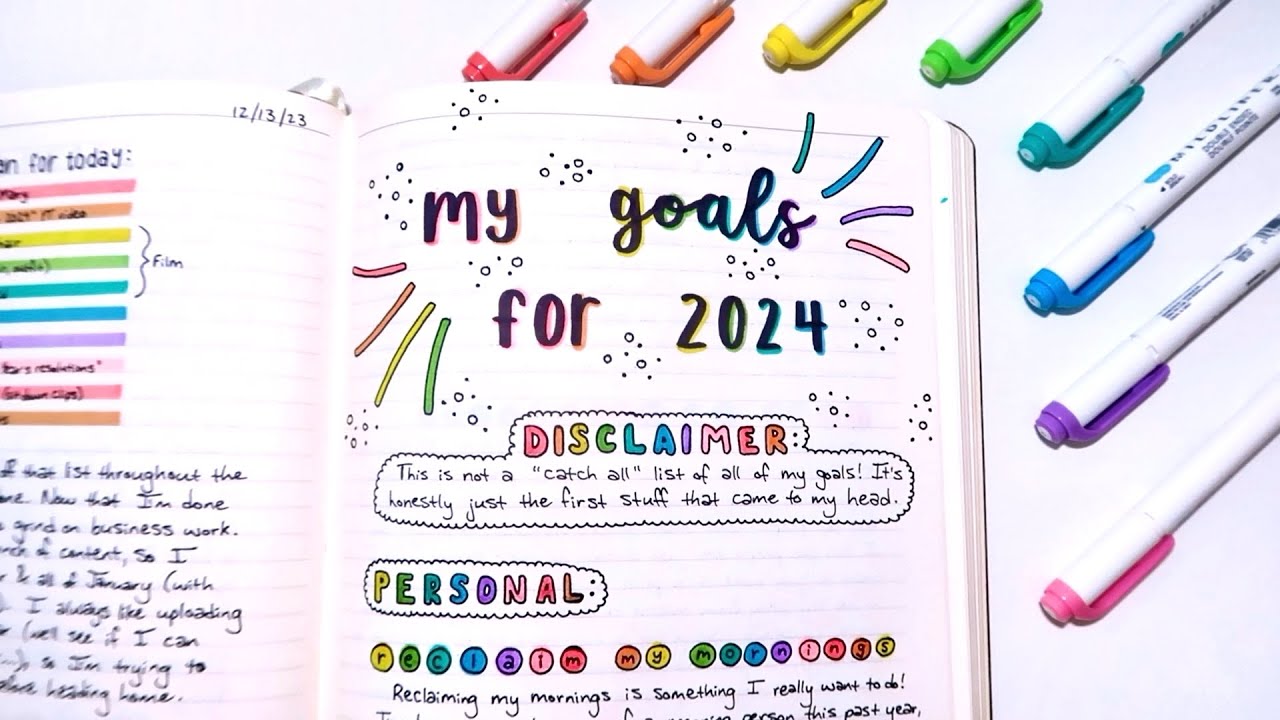 12/13/23
an for today:
Film
ear's resolutions"
that list throughout the
one. Now that I'm done
grind on business work.
of content, so I
& all of January (with
I always like uploading
(we'll see if I can
so I'm trying to
before heading home.
my goals
for 2024
DISCLAIMER:
This is not a "catch all" list of all of my goals! It's
honestly just the first stuff that came to my head.
PERSONAL:
reclaim my mornings
Reclaiming my mornings is something I really want to do!
person this past year,
MILDLINER